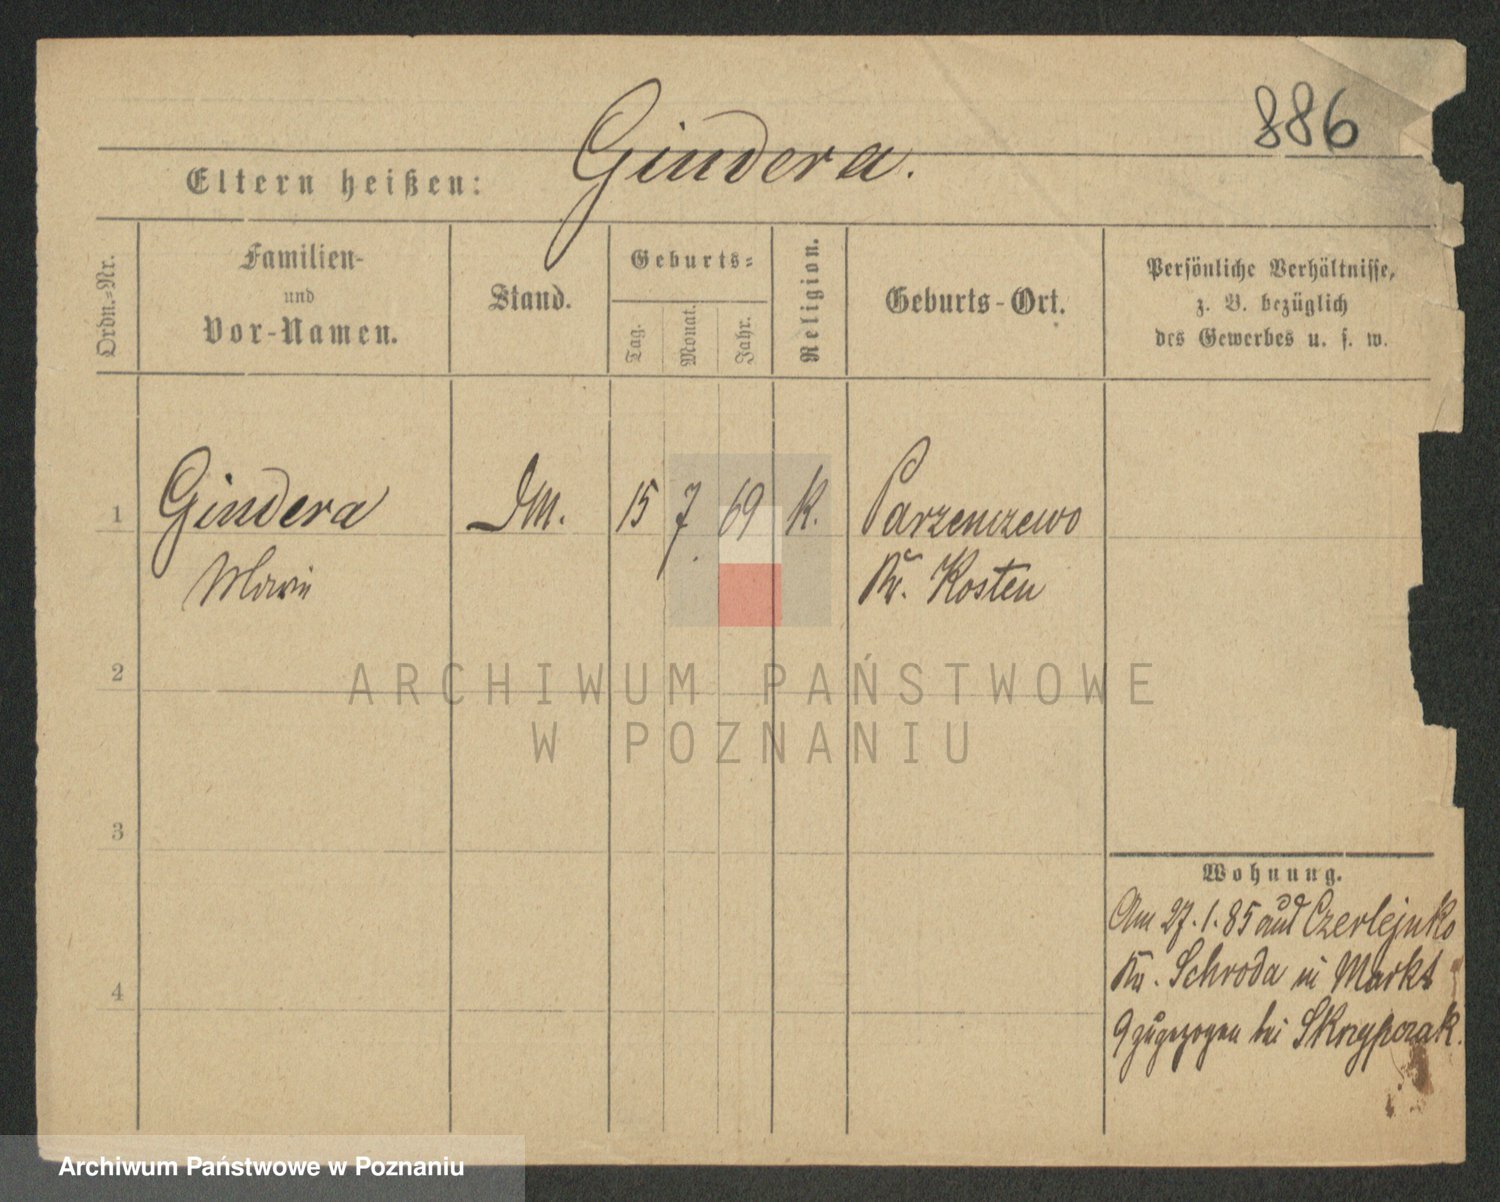 886
Gindera.
Eltern heißen:
Ordn.-Nr.
Familien-
und
Vor-Namen.
Stand.
Geburts-
Tag.
Monat.
Jahr.
Religion.
Geburts-Ort.
Persönliche Verhältnisse,
z. B. bezüglich
des Gewerbes u. s. w.
1 Gindera DM. 15 7. 69 k. Parzenczewo
Marie Kr. Kosten
2
ARCHIWUM PAŃSTWOWE
W POZNANIU
3
Wohnung.
Am 27.1.85 aus Czerlejnko
Kr. Schroda in Markt
4
9 zugezogen bei Skrzypczak.
Archiwum Państwowe w Poznaniu